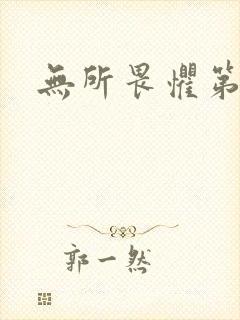 無所畏懼第
郭一然